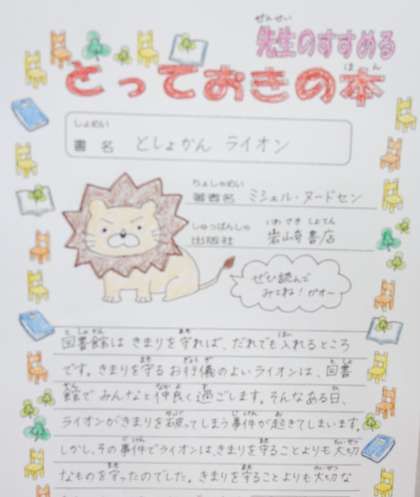 せんせい
先生のすすめる
ほん
とっておきの本
しょめい
書名 としょかん ライオン
ちょしゃめい
著者名 ミシェル・ヌードセン
しゅっぱんしゃ いわさきしょてん
出版社 岩崎書店
ぜひ読んで
みてね!ガオー
としょかん まも はい
図書館は きまりを守れば、だれでも入れるところ
まも ぎょうぎ としょ
です。きまりを守るお行儀のよいライオンは、図書
かん なかよ す ひ
館で みんなと仲良く過ごします。そんなある日、
やぶ じけん お
ライオンがきまりを破ってしまう事件が起きてしまいます。
じけん まも たいせつ
しかし、その事件でライオンは、きまりを守ることよりも大切
まも まも たいせつ
なものを守ったのでした。きまりを守ることよりも大切な